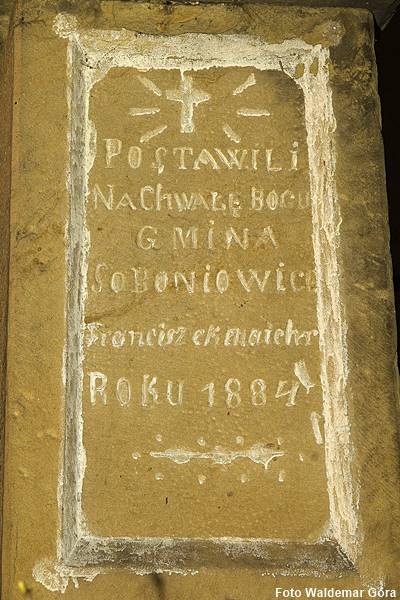 POSTAWILI
NA CHWAŁĘ BOGU
GMINA
SOBONIOWICE
Franciszek
ROKU 1884
Foto Waldemar Góra